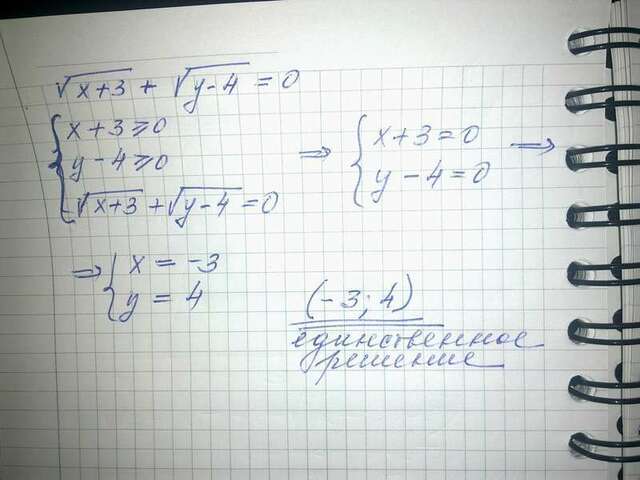 √x+3 + √y-4 = 0
{ x+3 ≥ 0
y-4 ≥ 0
√x+3 + √y-4 = 0
⇒ { x+3 = 0
y-4 = 0 ⇒
⇒ { x = -3
y = 4
(-3; 4)
единственное
решение